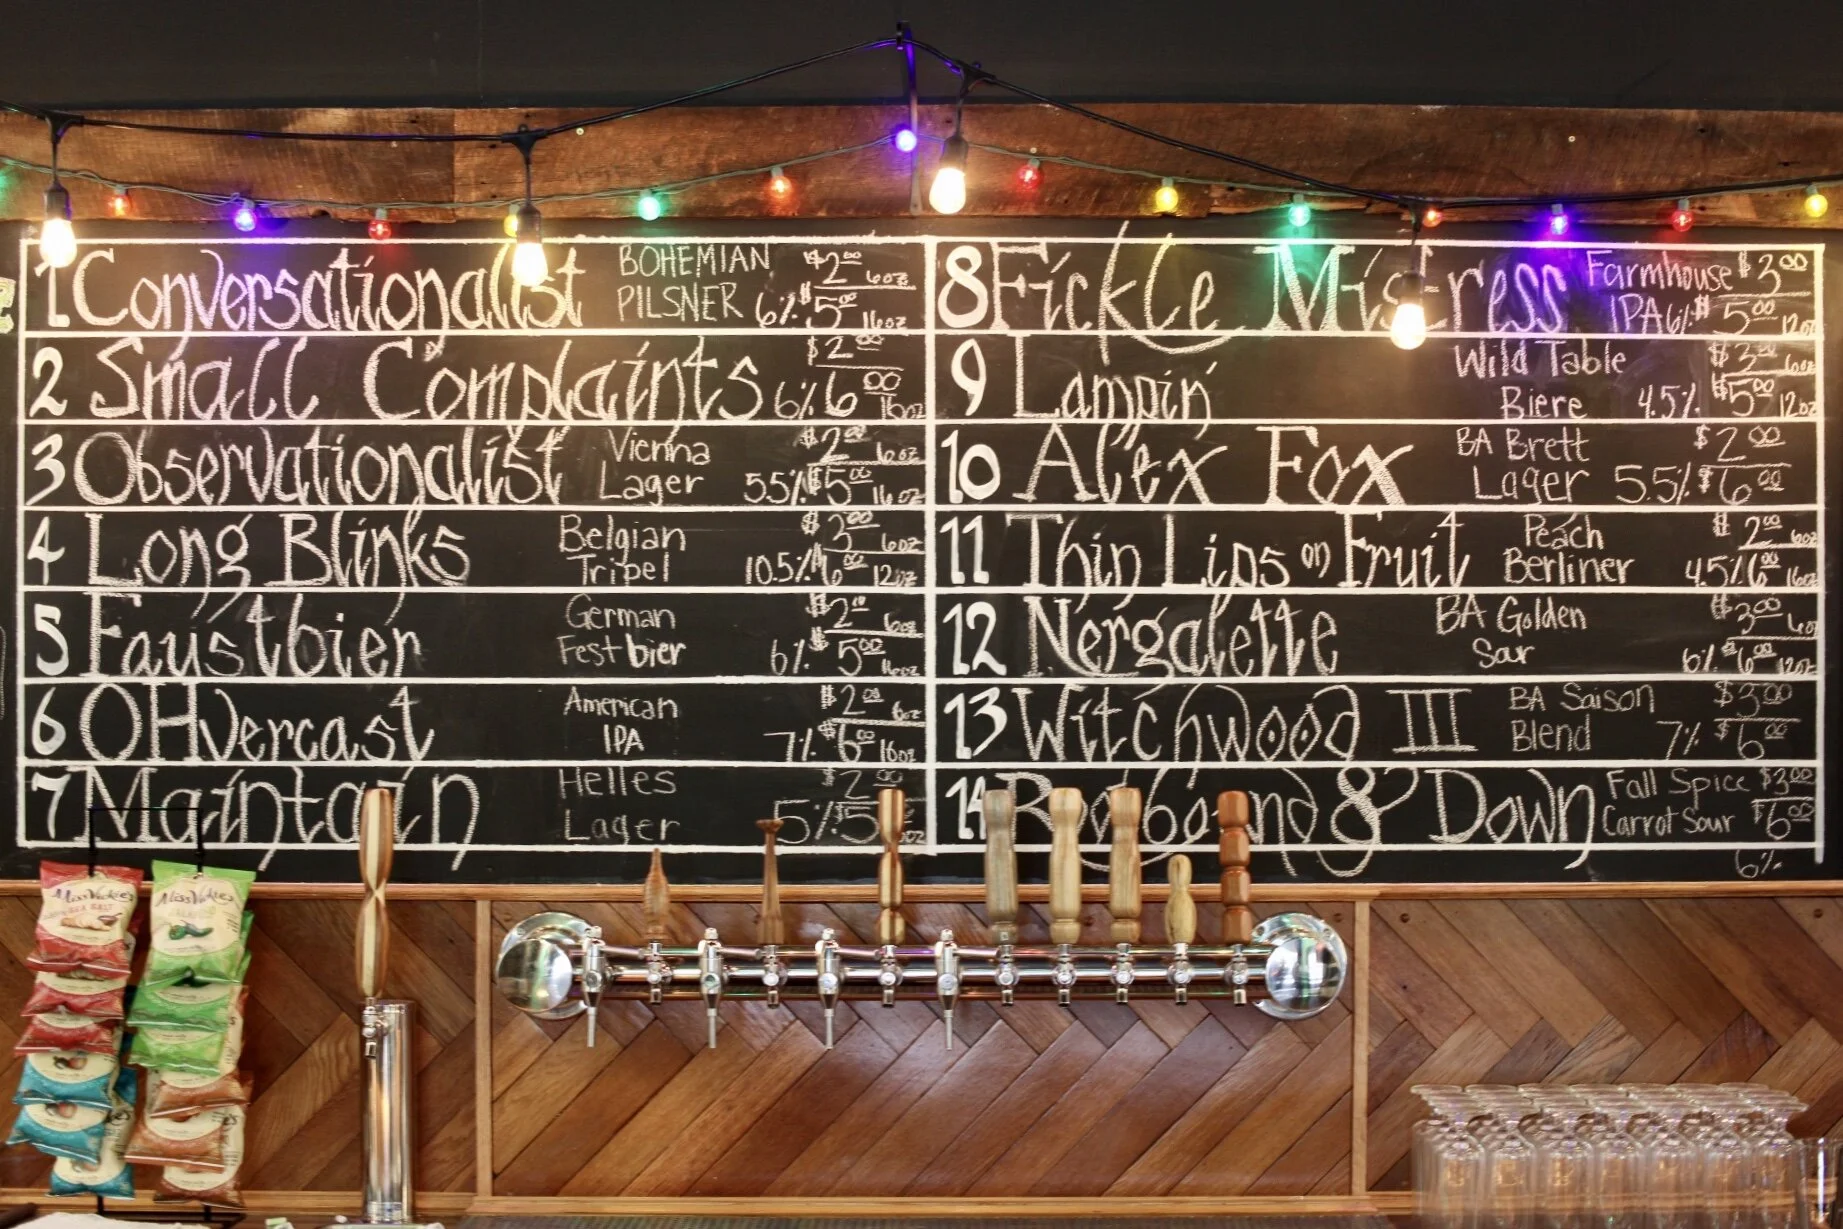 1 Conversationalist BOHEMIAN $2.00 6oz
PILSNER 6% $5.00 16oz
2 Small Complaints $2.00
6% 6.00 16oz
3 Observationalist Vienna $2.00 6oz
Lager 5.5% $5.00 16oz
4 Long Blinks Belgian $3.00 6oz
Tripel 10.5% 6.00 12oz
5 Faustbier German $2.00 6oz
Festbier 6% $5.00 16oz
6 OHvercast American $2.00 6oz
IPA 7% $6.00 16oz
7 Maintain Helles $2.00
Lager 5% $5
8 Fickle Mistress Farmhouse $3.00
IPA 6% $5.00 12oz
9 Lampin' Wild Table $3.00 6oz
Biere 4.5% $5.00 12oz
10 Alex Fox BA Brett $2.00
Lager 5.5% $6.00
11 Thin Lips on Fruit Peach $2.00 6oz
Berliner 4.5% 6.00 16oz
12 Nergalette BA Golden $3.00 6oz
Sour 6% $6.00 12oz
13 Witchwood III BA Saison $3.00
Blend 7% $6.00
14 & Down Fall Spice $3.00
Carrot Sour $6.00
6%
Miss Vickie's
SEA SALT
Miss Vickie's
JALAPEÑO